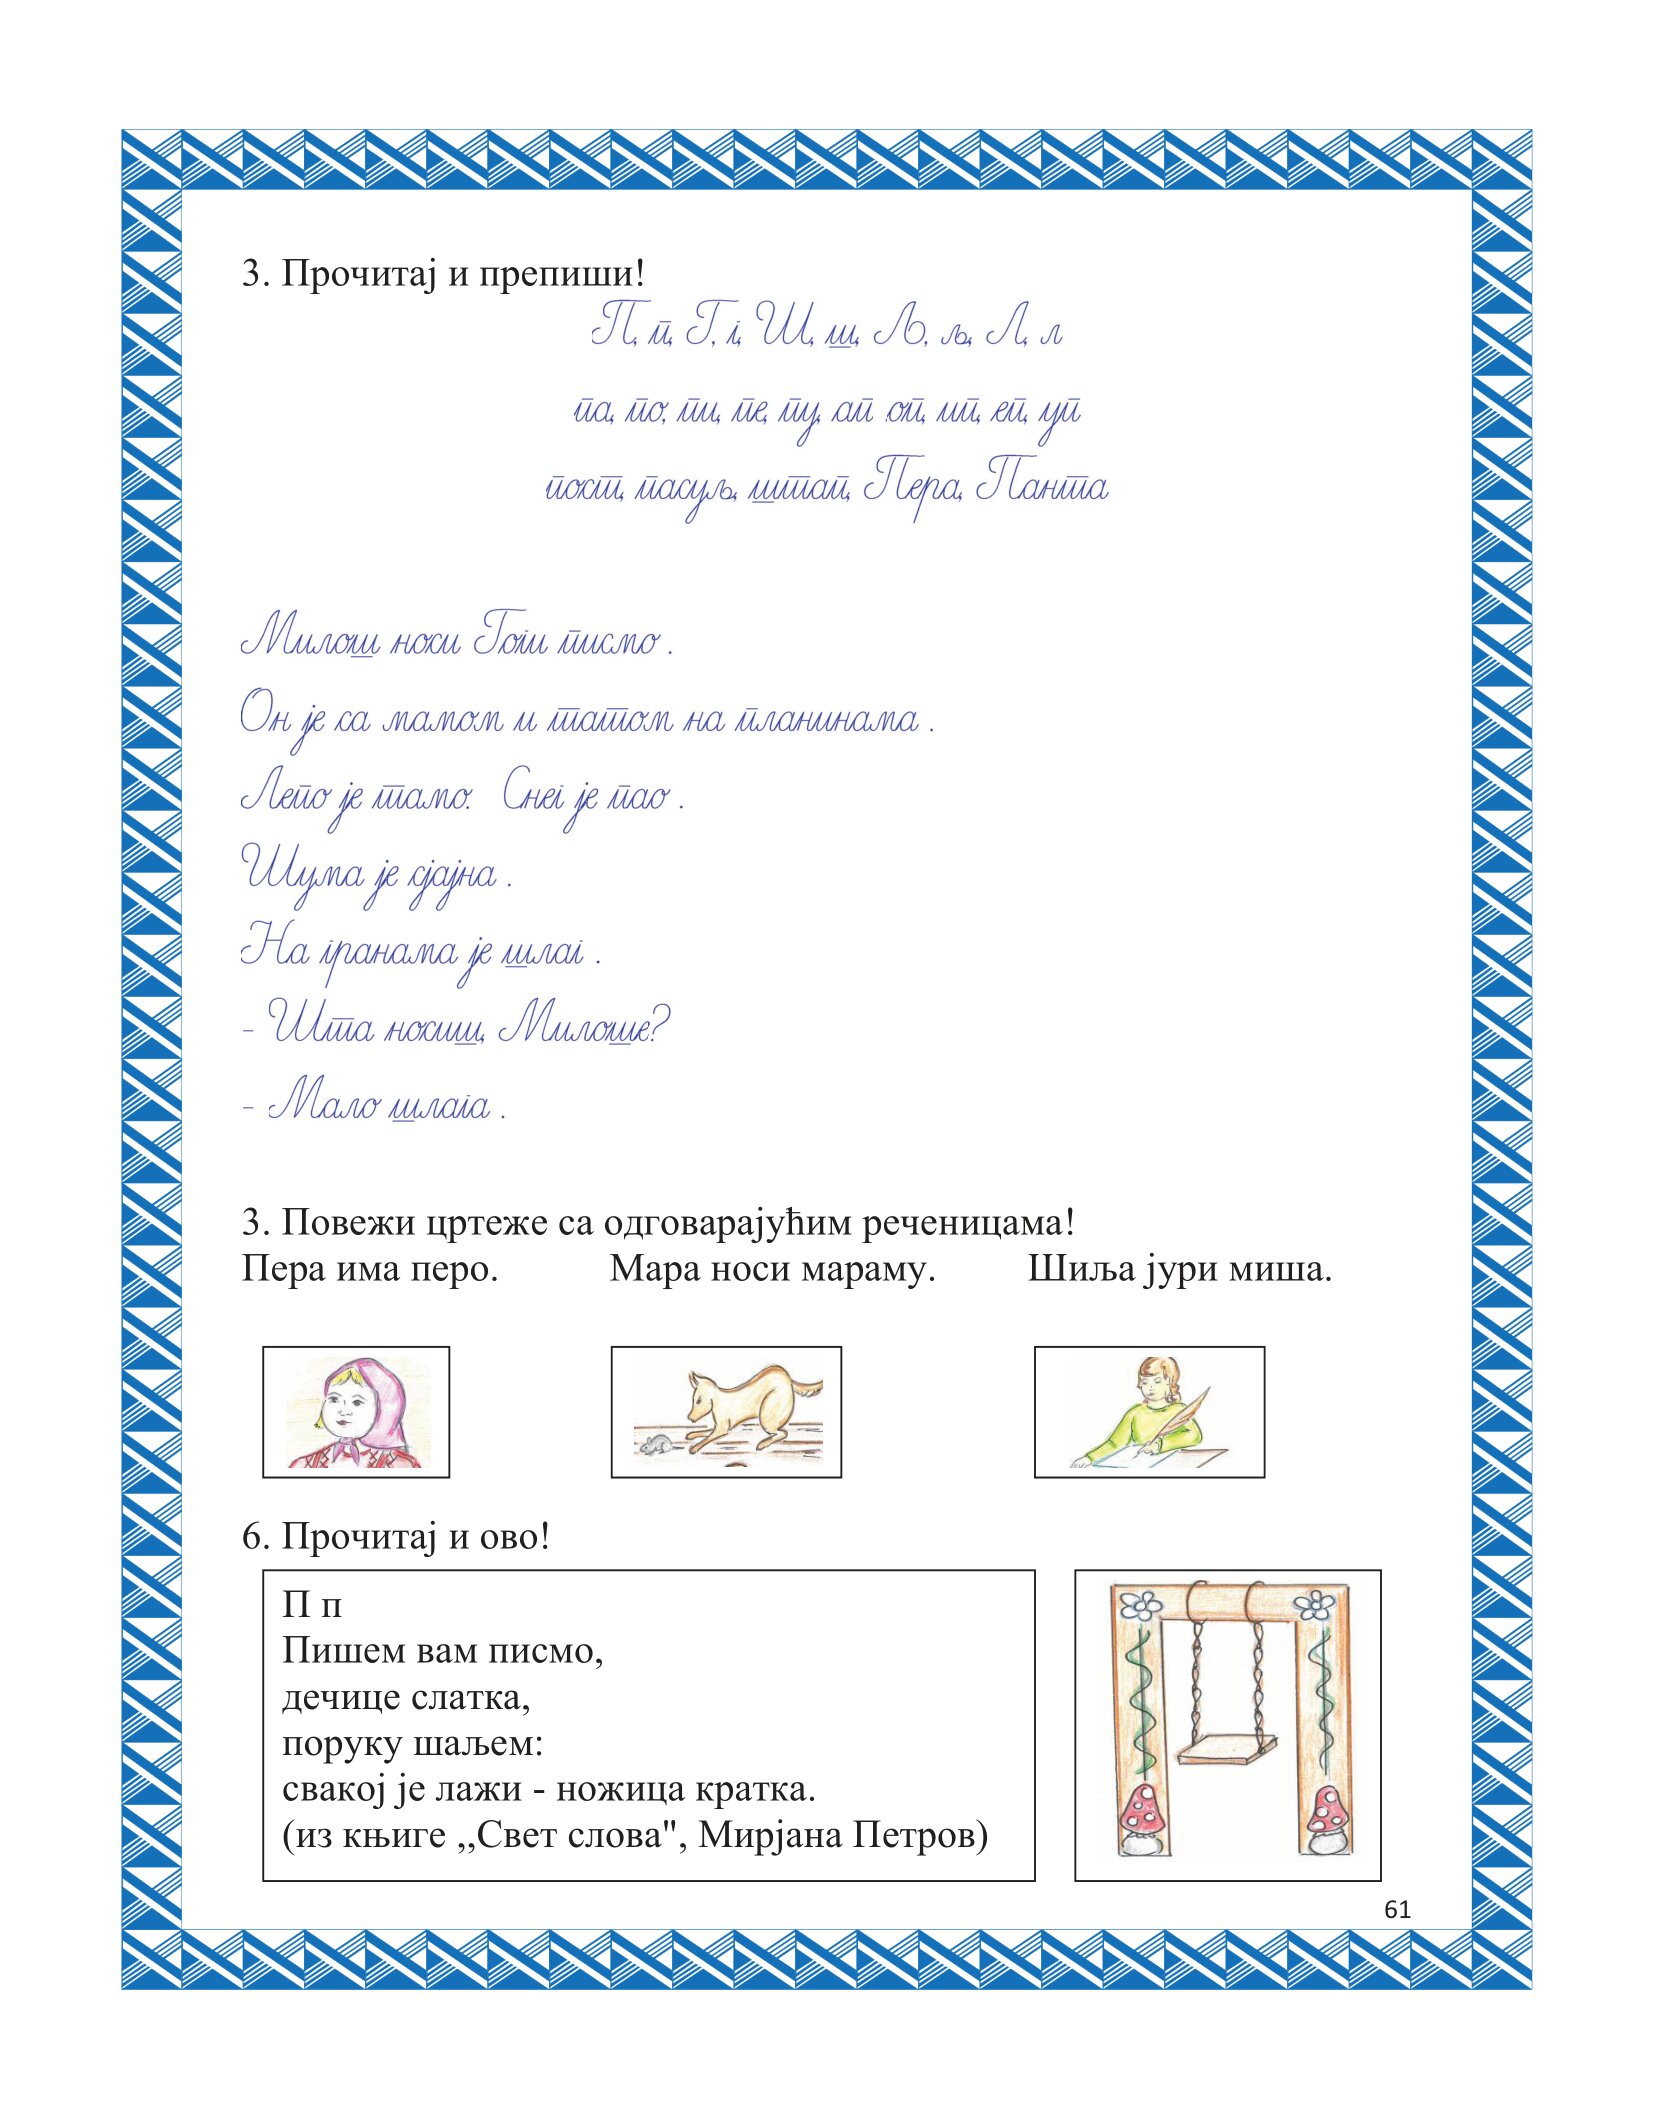 3. Прочитај и препиши!
П, п, Г, г, Ш, ш, Љ, љ, Л, л
па, по, пи, пе, пу, ап оп, ип, еп, уп
пост, пасуљ, штап, Пера, Панта
Милош носи Гоги писмо .
Он је са мамом и татом на планинама .
Лепо је тамо. Снег је пао .
Шума је сјајна .
На гранама је шлаг .
- Шта носиш, Милоше?
- Мало шлага .
3. Повежи цртеже са одговарајућим реченицама!
Пера има перо. Мара носи мараму. Шиља јури миша.
6. Прочитај и ово!
П п
Пишем вам писмо,
дечице слатка,
поруку шаљем:
свакој је лажи - ножица кратка.
(из књиге ,,Свет слова", Мирјана Петров)
61